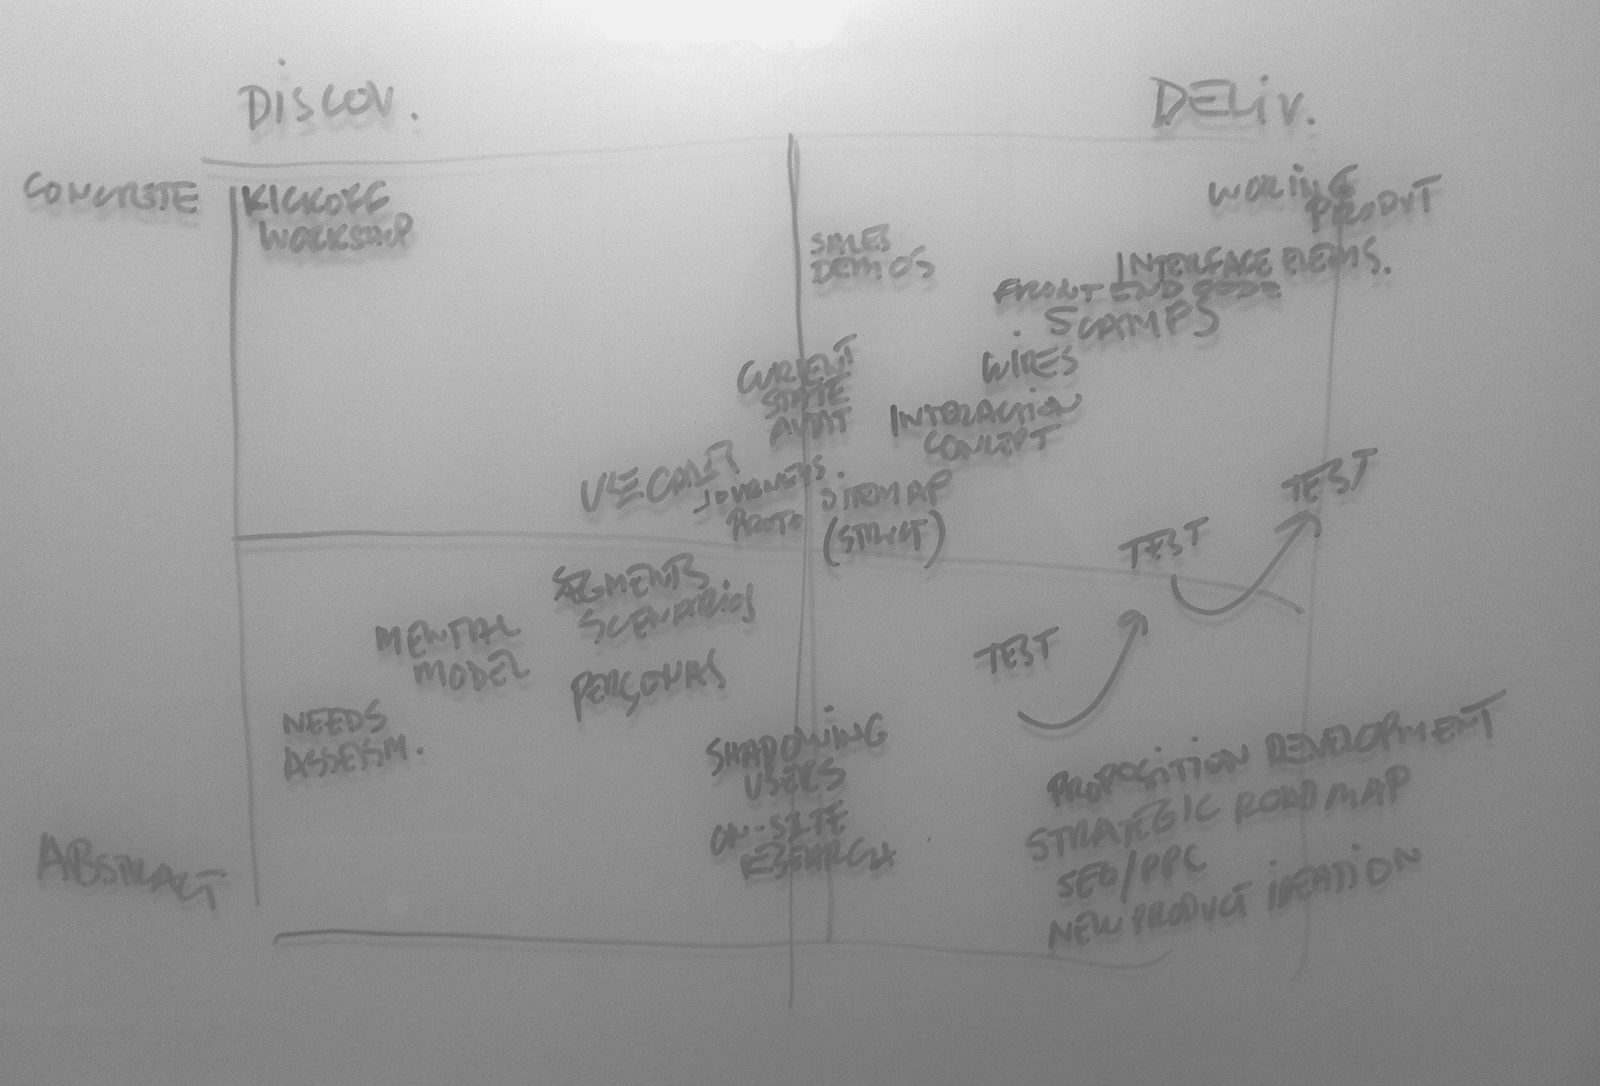 DISCOV.
DELIV.
CONCRETE
KICKOFF
WORKSHOP
WORING
PRODUT
SALES
DEMOS
INTERFACE ELEMS.
FRONT END CODE
SCAMPS
WIRES
CURRENT
STATE
AUDIT
INTERACTION
CONCEPT
USE CASES
JOURNEYS.
PROTO
SITEMAP
(STRUCT)
TEST
TEST
TEST
SEGMENTS
SCENARIOS
MENTAL
MODEL
PERSONAS
NEEDS
ASSESSM.
SHADOWING
USERS
ON-SITE
RESEARCH
PROPOSITION DEVELOPMENT
STRATEGIC ROADMAP
SEO/PPC
NEW PRODUCT IDEATION
ABSTRACT